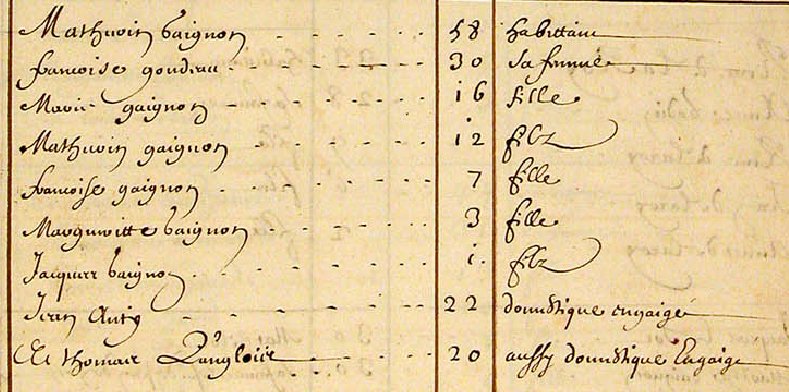 Mathurin baignon 58 habittant
francoise goudeau 30 Sa femme
Marie gaignon 16 fille
Mathurin gaignon 12 filz
francoise gaignon 7 fille
Margueritte baignon 3 fille
Jacques baignon 1. filz
Jean 22 domestique engaigé
Et thomas Langlois 20 aussy domestique Engaigé